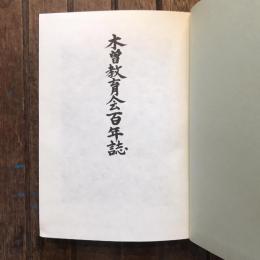 木曽教育会百年誌